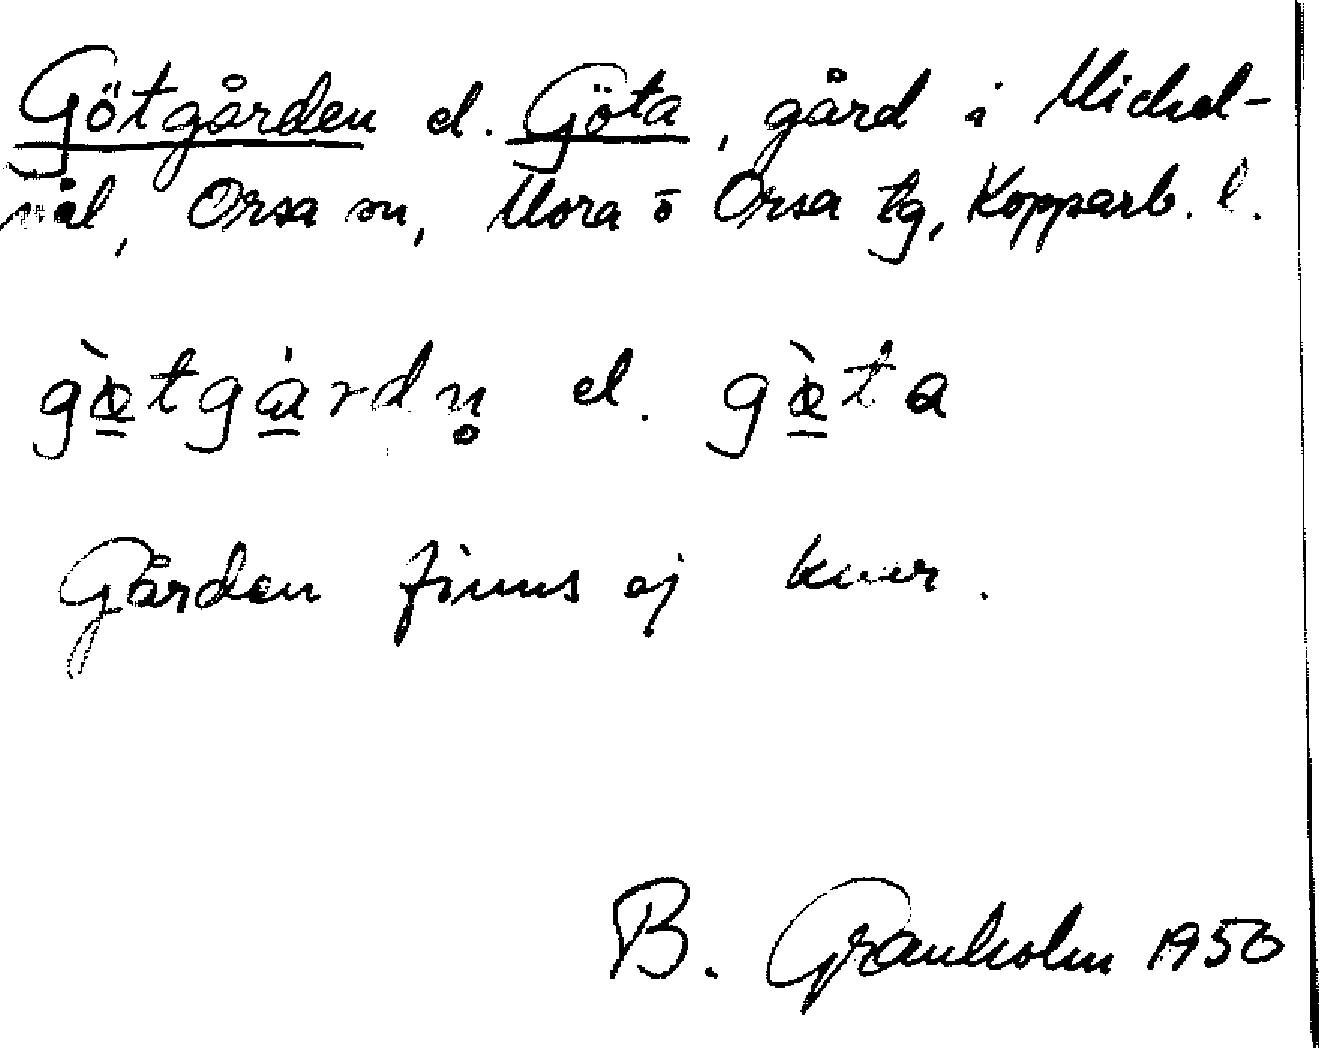 Götgården el. Göta, gård i Michel-
vål, Orsa sn, Mora o Orsa tg, Kopparb. l.
gœ̀tgárdn̥ el. gœ̀ta
Gården finns ej kvar.
B. Granholm 1950